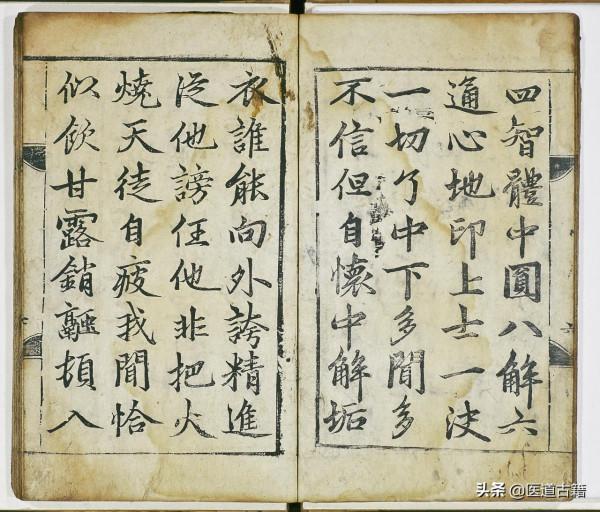 四智體中圓八解六
通心地印上士一決
一切了中下多聞多
不信但自懷中解垢
衣誰能向外誇精進
從他謗任他非把火
燒天徒自疲我聞恰
似飲甘露銷融頓入
头条 @医道古籍